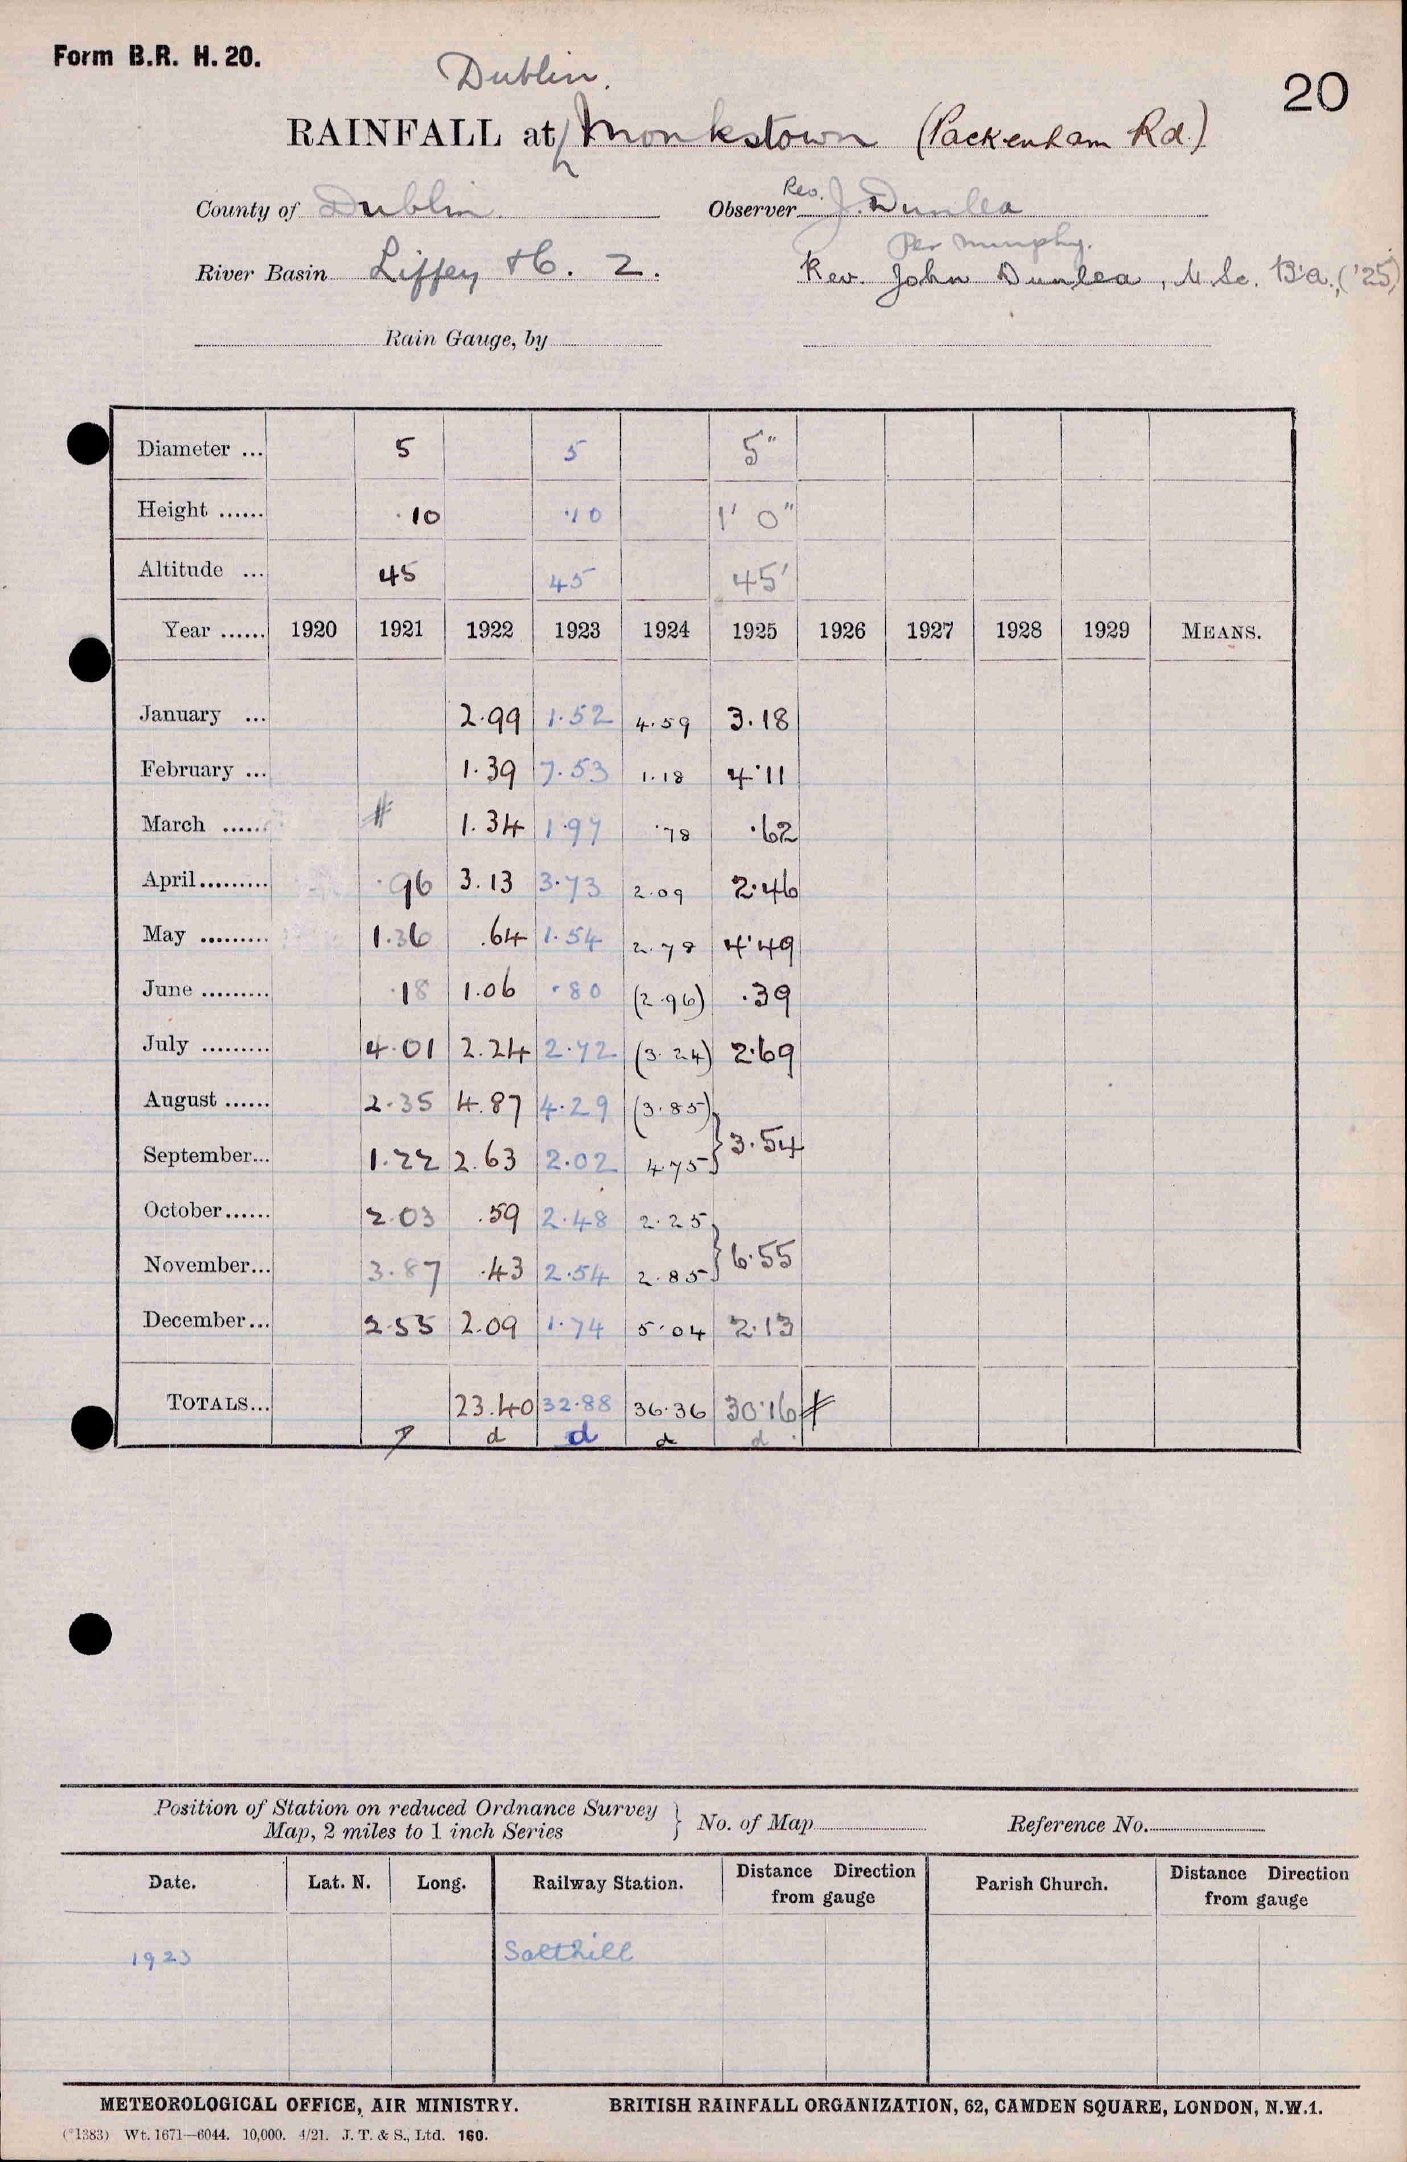 Form B.R. H. 20.
20
Dublin.
RAINFALL at Monkstown (Packenham Rd.)
County of Dublin Observer Rev. J. Dunlea
Per Murphy.
River Basin Liffey &c. 2. Rev. John Dunlea, M.Sc. B.A., ('25)
Rain Gauge, by
Diameter ... 5 5 5"
Height ...... ·10 ·10 1' 0"
Altitude ... 45 45 45'
Year ...... 1920 1921 1922 1923 1924 1925 1926 1927 1928 1929 MEANS.
January ... 2.99 1.52 4.59 3.18
February ... 1.39 7.53 1.18 4.11
March ...... # 1.34 1.97 .78 .62
April......... .96 3.13 3.73 2.09 2.46
May ......... 1.36 .64 1.54 2.78 4.49
June ......... .18 1.06 .80 (2.96) .39
July ......... 4.01 2.24 2.72 (3.24) 2.69
August ...... 2.35 4.87 4.29 (3.85)
September... 1.22 2.63 2.02 4.75 } 3.54
October...... 2.03 .59 2.48 2.25
November... 3.87 .43 2.54 2.85 } 6.55
December... 2.55 2.09 1.74 5.04 2.13
TOTALS... 23.40 32.88 36.36 30.16 #
d d d d
Position of Station on reduced Ordnance Survey
Map, 2 miles to 1 inch Series } No. of Map Reference No.
Date. Lat. N. Long. Railway Station. Distance Direction from gauge Parish Church. Distance Direction from gauge
1923 Salthill
METEOROLOGICAL OFFICE, AIR MINISTRY. BRITISH RAINFALL ORGANIZATION, 62, CAMDEN SQUARE, LONDON, N.W.1.
(*1383) Wt. 1671—6044. 10,000. 4/21. J. T. & S., Ltd. 160.